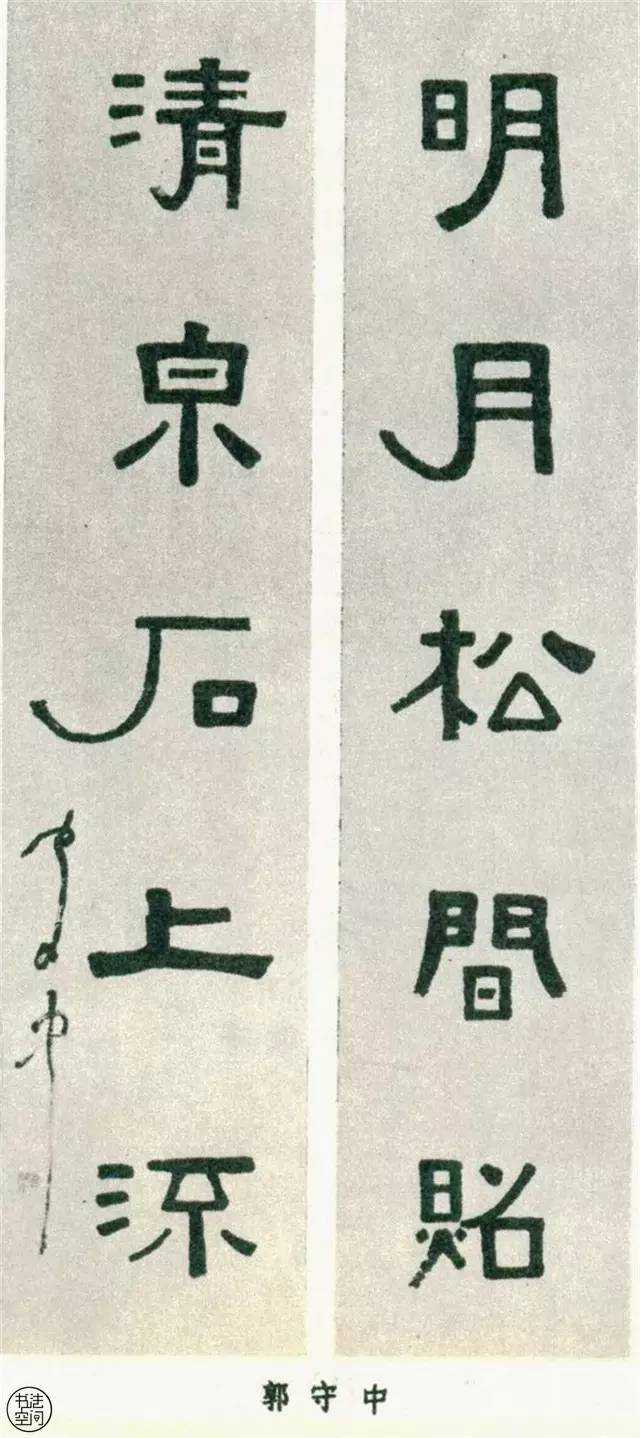 明月松間照
清泉石上流
守中
郭守中
书法空间